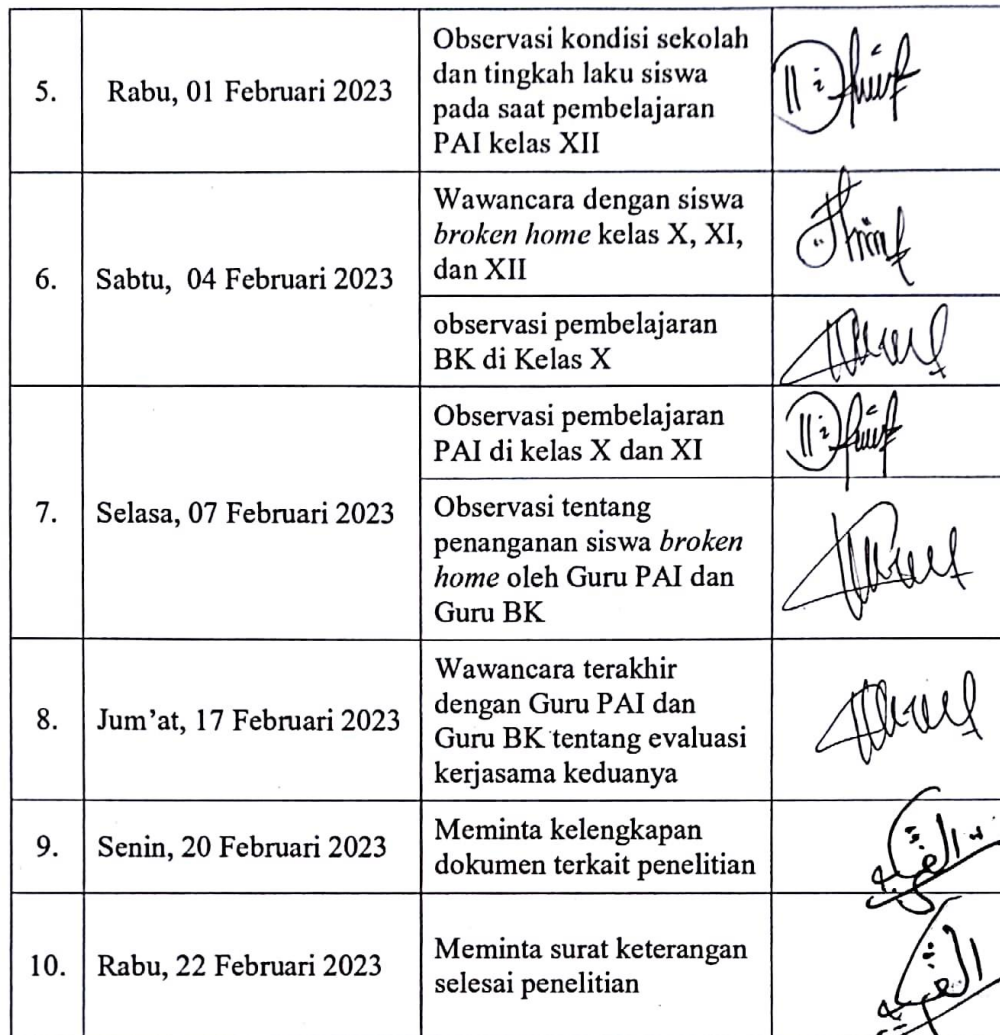 5.
Rabu, 01 Februari 2023
Observasi kondisi sekolah
dan tingkah laku siswa
pada saat pembelajaran
PAI kelas XII
6.
Sabtu, 04 Februari 2023
Wawancara dengan siswa
broken home kelas X, XI,
dan XII
observasi pembelajaran
BK di Kelas X
7.
Selasa, 07 Februari 2023
Observasi pembelajaran
PAI di kelas X dan XI
Observasi tentang
penanganan siswa broken
home oleh Guru PAI dan
Guru BK
8.
Jum'at, 17 Februari 2023
Wawancara terakhir
dengan Guru PAI dan
Guru BK tentang evaluasi
kerjasama keduanya
9.
Senin, 20 Februari 2023
Meminta kelengkapan
dokumen terkait penelitian
10.
Rabu, 22 Februari 2023
Meminta surat keterangan
selesai penelitian